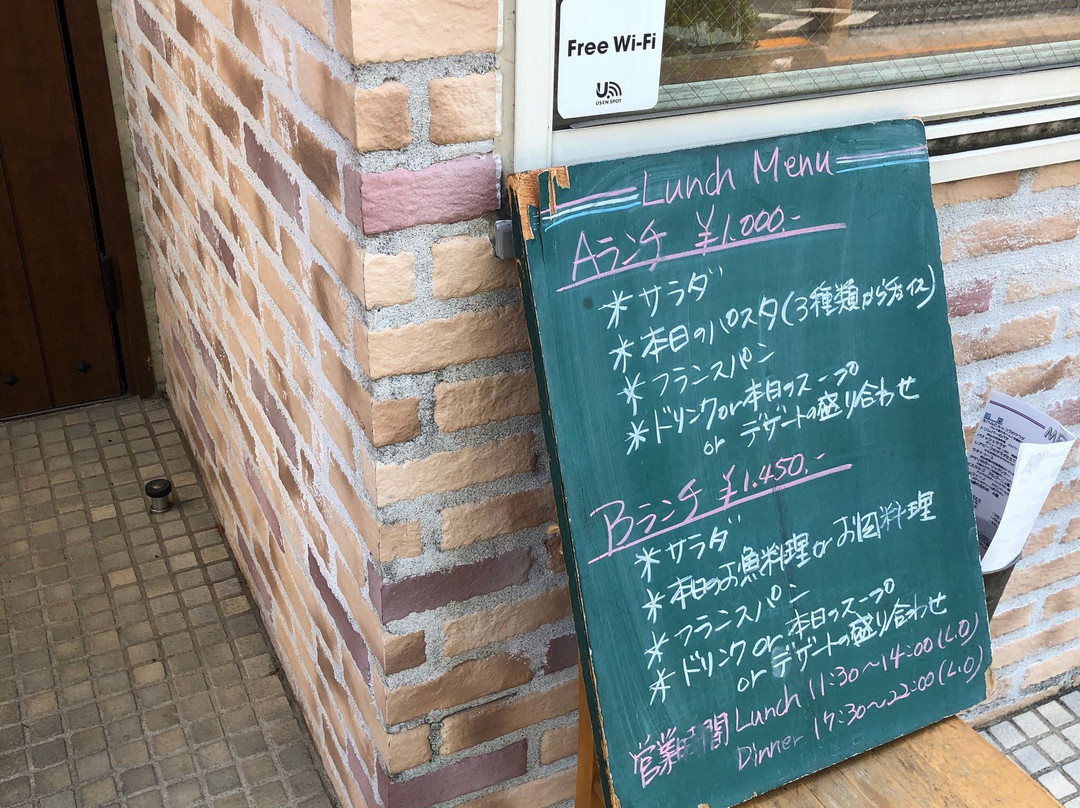 Free Wi-Fi
USEN SPOT
Lunch Menu
Aランチ ¥1.000.-
＊サラダ
＊本日のパスタ(3種類から
＊フランスパン
＊ドリンクor本日のスープ
or デザートの盛り合わせ
Bランチ ¥1.450.-
＊サラダ
＊本日のお魚料理orお肉料理
＊フランスパン
＊ドリンクor本日のスープ
or デザートの盛り合わせ
営業時間 Lunch 11:30～14:00(L.O)
Dinner 17:30～22:00(L.O)